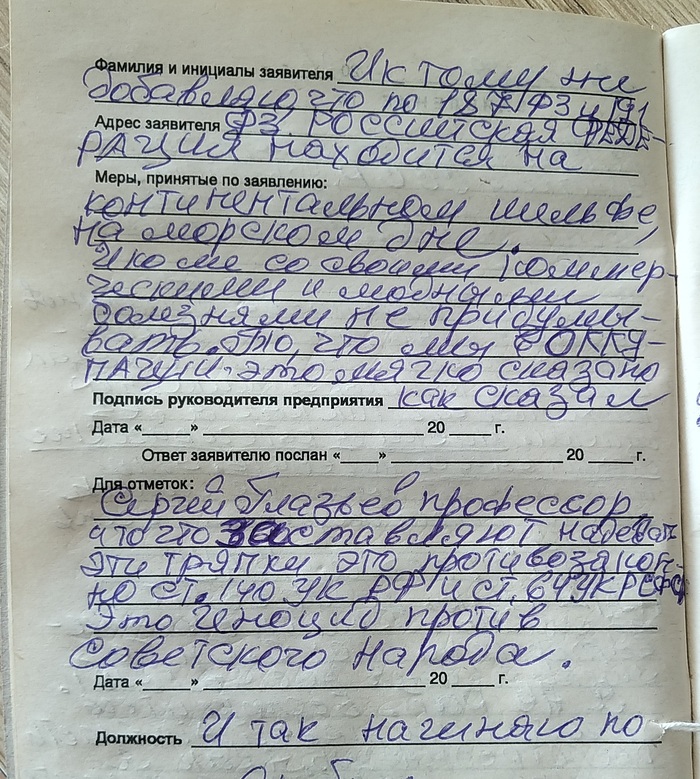 Фамилия и инициалы заявителя И к тому же
добавляю что по 187 ФЗ и 191
Адрес заявителя ФЗ. РОССИЙСКАЯ ФЕДЕ-
РАЦИЯ находится на
Меры, принятые по заявлению:
континентальном шельфе,
на морском дне.
И ко мне со своими коммер-
ческими и модными
болезнями не придумы-
вать. что мы в ОККУ-
ПАЦИИ-это мягко сказано
Подпись руководителя предприятия как сказал
Дата «____» ____ 20____ г.
Ответ заявителю послан «____» ____ 20____ г.
Для отметок:
Сергей Глазьев профессор
что заставляют надевать
эти тряпки это противозакон-
но ст. 140 УК РФ и ст. 64 УК РСФСР
Это геноцид против
советского народа.
Дата «____» ____ 20____ г.
Должность И так начинаю по